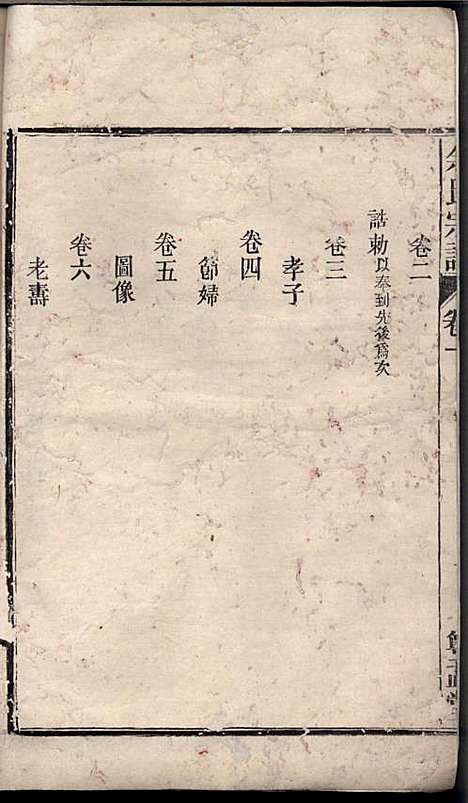 卷二
誥勅以奉到先後為次
卷三
孝子
卷四
節婦
卷五
圖像
卷六
老壽
氏宗譜 卷一